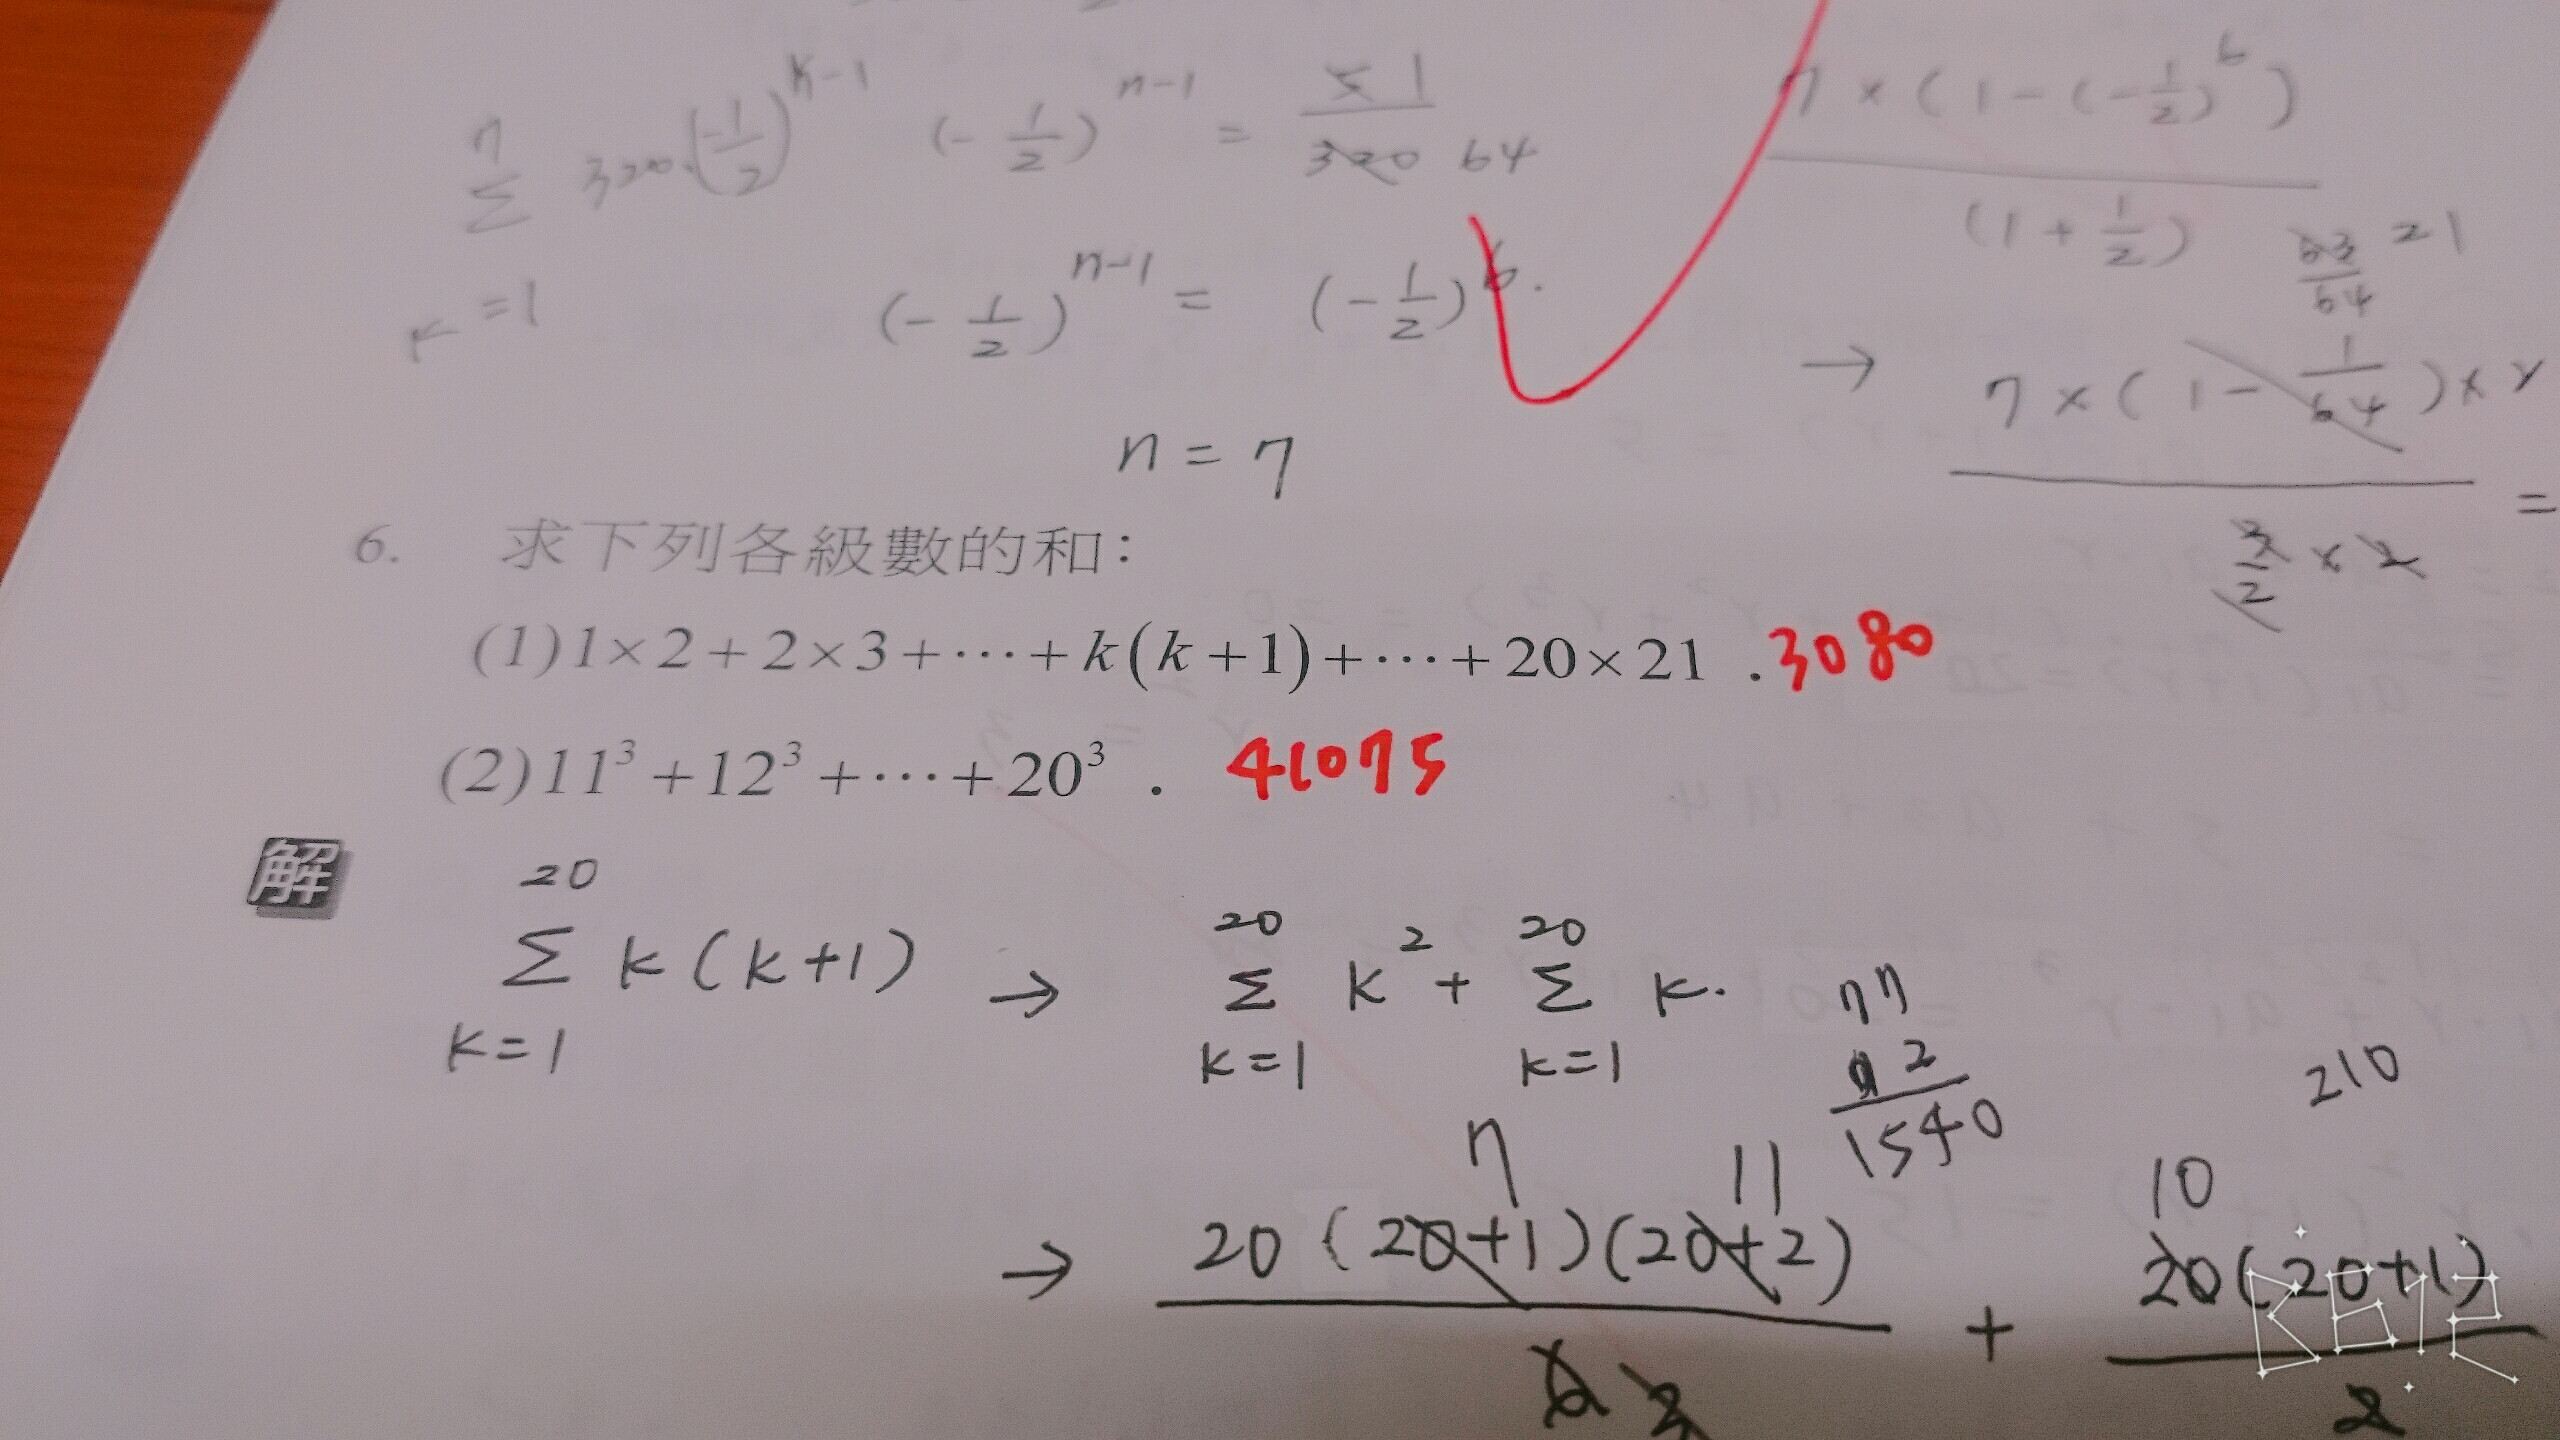 n
Σ 320·(-1/2)^(k-1)
k=1
(-1/2)^(n-1) = 5 1 / 320 64
(-1/2)^(n-1) = (-1/2)^6.
n = 7
7 × (1-(-1/2)^6)
(1+1/2)
63/64 21
→ 7 × (1-1/64) ×
3/2 × 2 =
6. 求下列各級數的和：
(1) 1×2+2×3+⋯+k(k+1)+⋯+20×21 . 3080
(2) 11³+12³+⋯+20³ . 41075
解
20
Σ k(k+1)
k=1
→
20 20
Σ k² + Σ k.
k=1 k=1
77
2
1540
210
7 11 10
→ 20(20+1)(20+2) + 20(20+1)
6 2 2